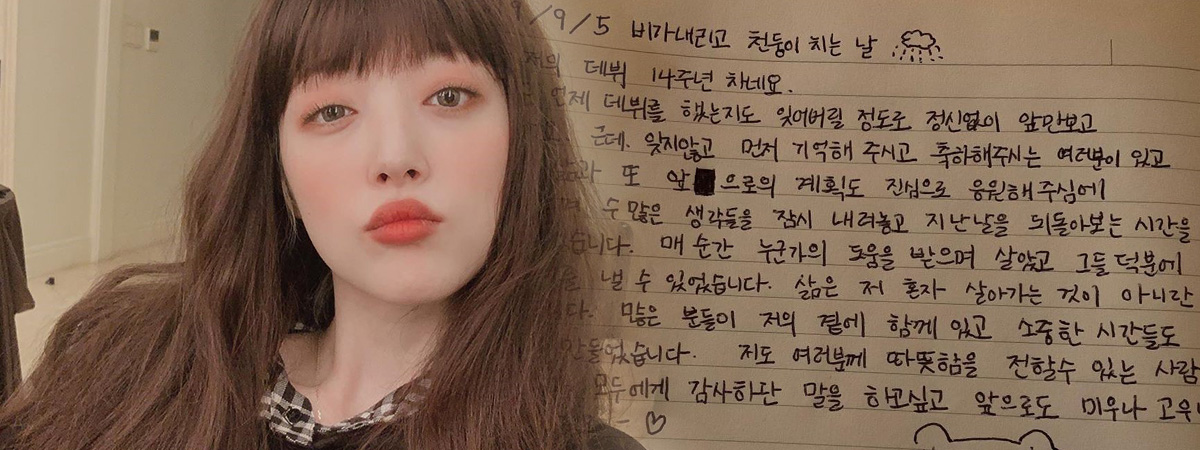 9/9/5 비가내리고 천둥이 치는 날
저의 데뷔 14주년 차네요.
언제 데뷔를 했는지도 잊어버릴 정도로 정신없이 앞만보고
근데. 잊지않고 먼저 기억해 주시고 축하해주시는 여러분이 있고
또 앞으로의 계획도 진심으로 응원해주심에
수많은 생각들을 잠시 내려놓고 지난날을 되돌아보는 시간을
습니다. 매 순간 누군가의 도움을 받으며 살았고 그들 덕분에
낼 수 있었습니다. 삶은 저 혼자 살아가는 것이 아니란
다. 많은 분들이 저의 곁에 함께 있고 소중한 시간들도
만들었습니다. 저도 여러분께 따뜻함을 전할수 있는 사람
모두에게 감사하단 말을 하고싶고 앞으로도 미우나 고우나